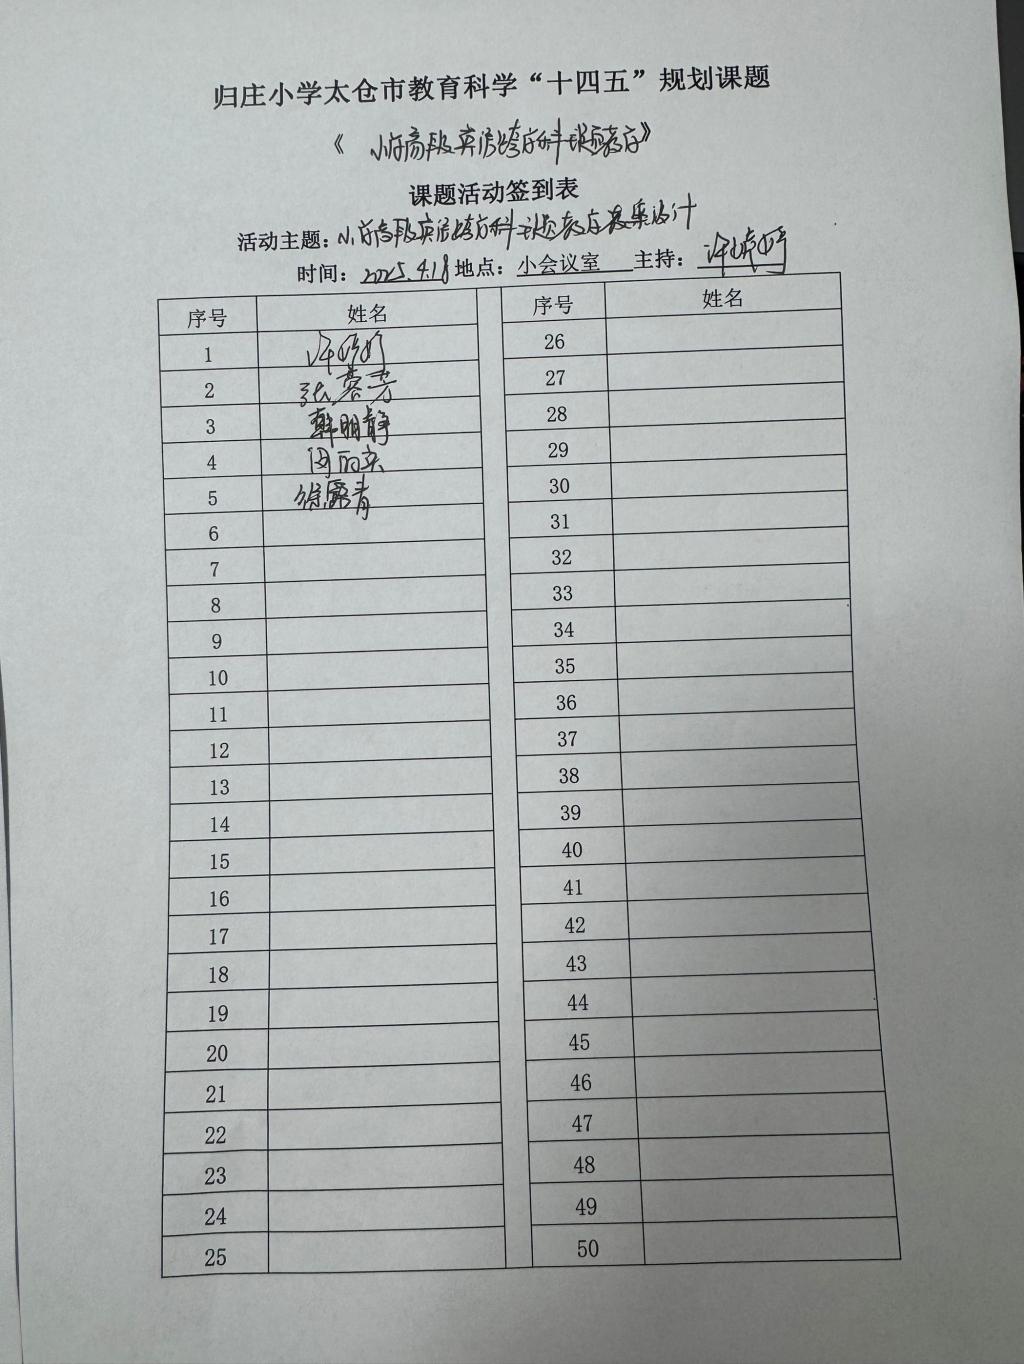 归庄小学太仓市教育科学“十四五”规划课题
《小学高段英语跨学科主题教学》
课题活动签到表
活动主题：小学高段英语跨学科主题教学设计
时间：2025.4.18 地点：小会议室 主持：许
序号 姓名 序号 姓名
1 许 26
2 张蓉芳 27
3 韩明静 28
4 周 29
5 徐露青 30
6 31
7 32
8 33
9 34
10 35
11 36
12 37
13 38
14 39
15 40
16 41
17 42
18 43
19 44
20 45
21 46
22 47
23 48
24 49
25 50